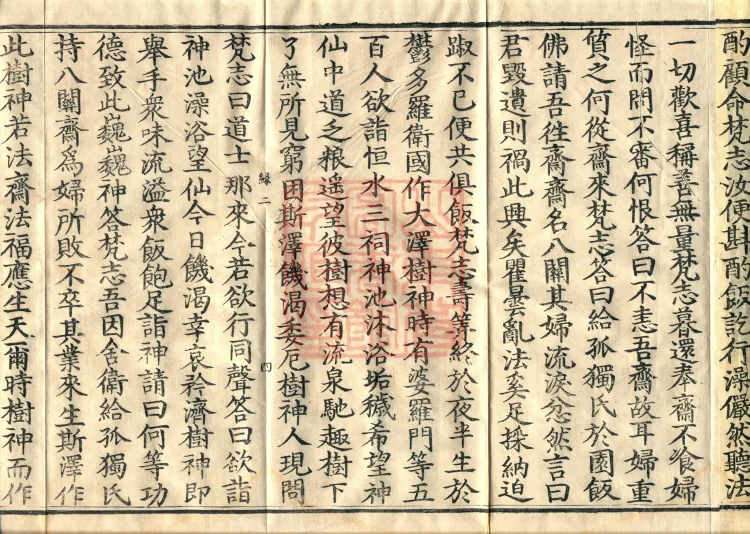 酌顧命梵志汝便斟酌飯訖行澡儼然聽法
一切歡喜稱善無量梵志暮還奉齋不飡婦
怪而問不審何恨答曰不恚吾齋故耳婦重
質之何從齋來梵志答曰給孤獨氏於園飯
佛請吾往齋齋名八關其婦流淚忿然言曰
君毀遺則禍此興矣瞿曇亂法奚足採納迫
踧不已便共俱飯梵志壽等終於夜半生於
欝多羅衛國作大澤樹神時有婆羅門等五
百人欲詣恒水三祠神池沐浴垢穢希望神
仙中道乏粮遥望彼樹想有流泉馳趣樹下
了無所見窮困斯澤饑渴委厄樹神人現問
緣二 四
梵志曰道士那來今若欲行同聲答曰欲詣
神池澡浴望仙今日饑渴幸哀矜濟樹神即
舉手衆味流溢衆飯飽足詣神請曰何等功
德致此巍巍神答梵志吾因舍衛給孤獨氏
持八關齋爲婦所敗不卒其業來生斯澤作
此樹神若法齋法福應生天爾時樹神而作